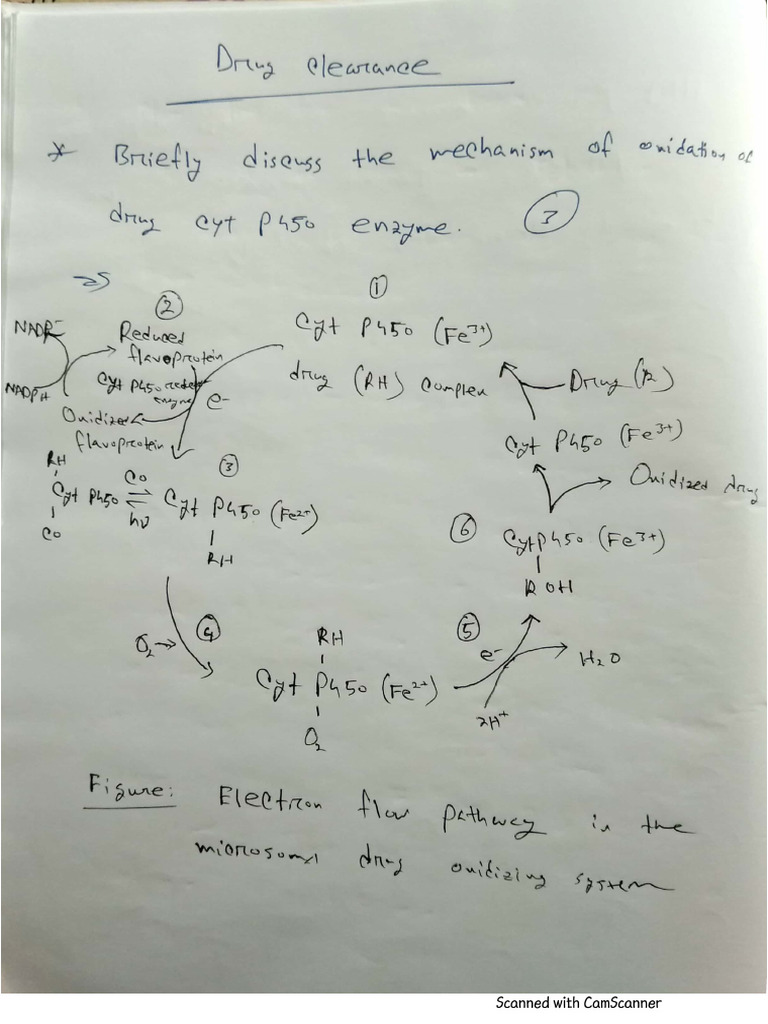 Drug clearance
* Briefly discuss the mechanism of oxidation of
drug cyt P450 enzyme. (3)
①
Cyt P450 (Fe3+)
drug (RH) complex
②
Reduced
flavoprotein
NADP-
NADPH
Cyt P450
enzyme
e-
Oxidized
flavoprotein
Drug (R)
Cyt P450 (Fe3+)
Oxidized drug
RH
Cyt P450
CO
CO
hν
③
Cyt P450 (Fe2+)
RH
⑥
Cyt P450 (Fe3+)
ROH
O2→
④
RH
Cyt P450 (Fe2+)
O2
⑤
e-
2H+
H2O
Figure: Electron flow pathway in the
microsomal drug oxidizing system
Scanned with CamScanner